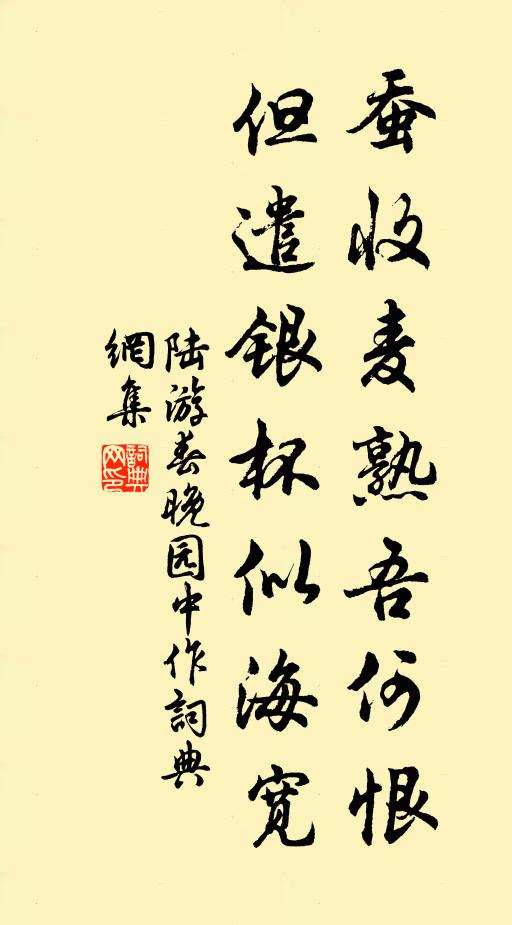 蚕收麦熟吾何恨
但遣银杯似海宽
陆游春晚园中作詞典
網集
詞典
网印